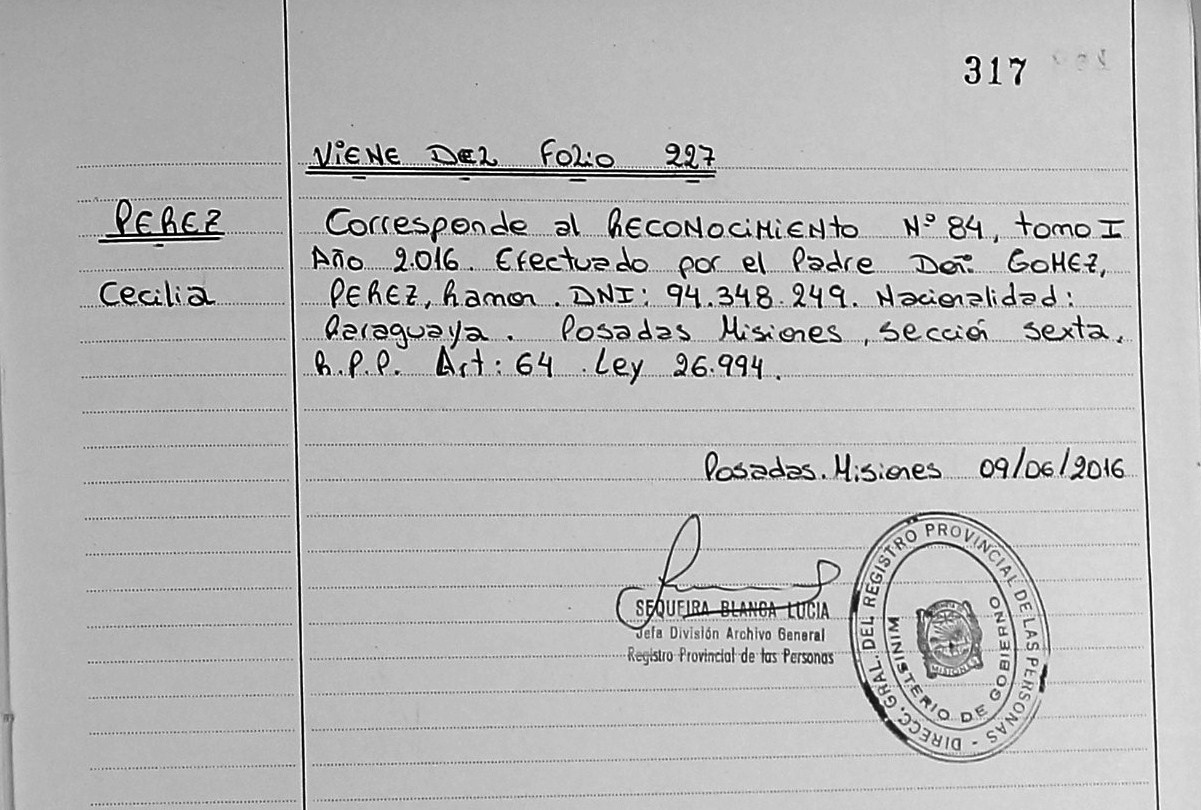 317
VIENE DEL FOLIO 227
PEREZ
Cecilia
Corresponde al RECONOCIMIENTO Nº 84, tomo I
Año 2.016. Efectuado por el Padre Don: GOMEZ,
PEREZ, Ramon. DNI: 94.348.249. Nacionalidad:
Paraguaya. Posadas Misiones, sección sexta.
R.P.P. Art: 64 Ley 26.994.
Posadas. Misiones 09/06/2016
SEQUEIRA BLANCA LUCIA
Jefa División Archivo General
Registro Provincial de las Personas
DIRECC. GRAL. DEL REGISTRO PROVINCIAL DE LAS PERSONAS -
MINISTERIO DE GOBIERNO
MISIONES